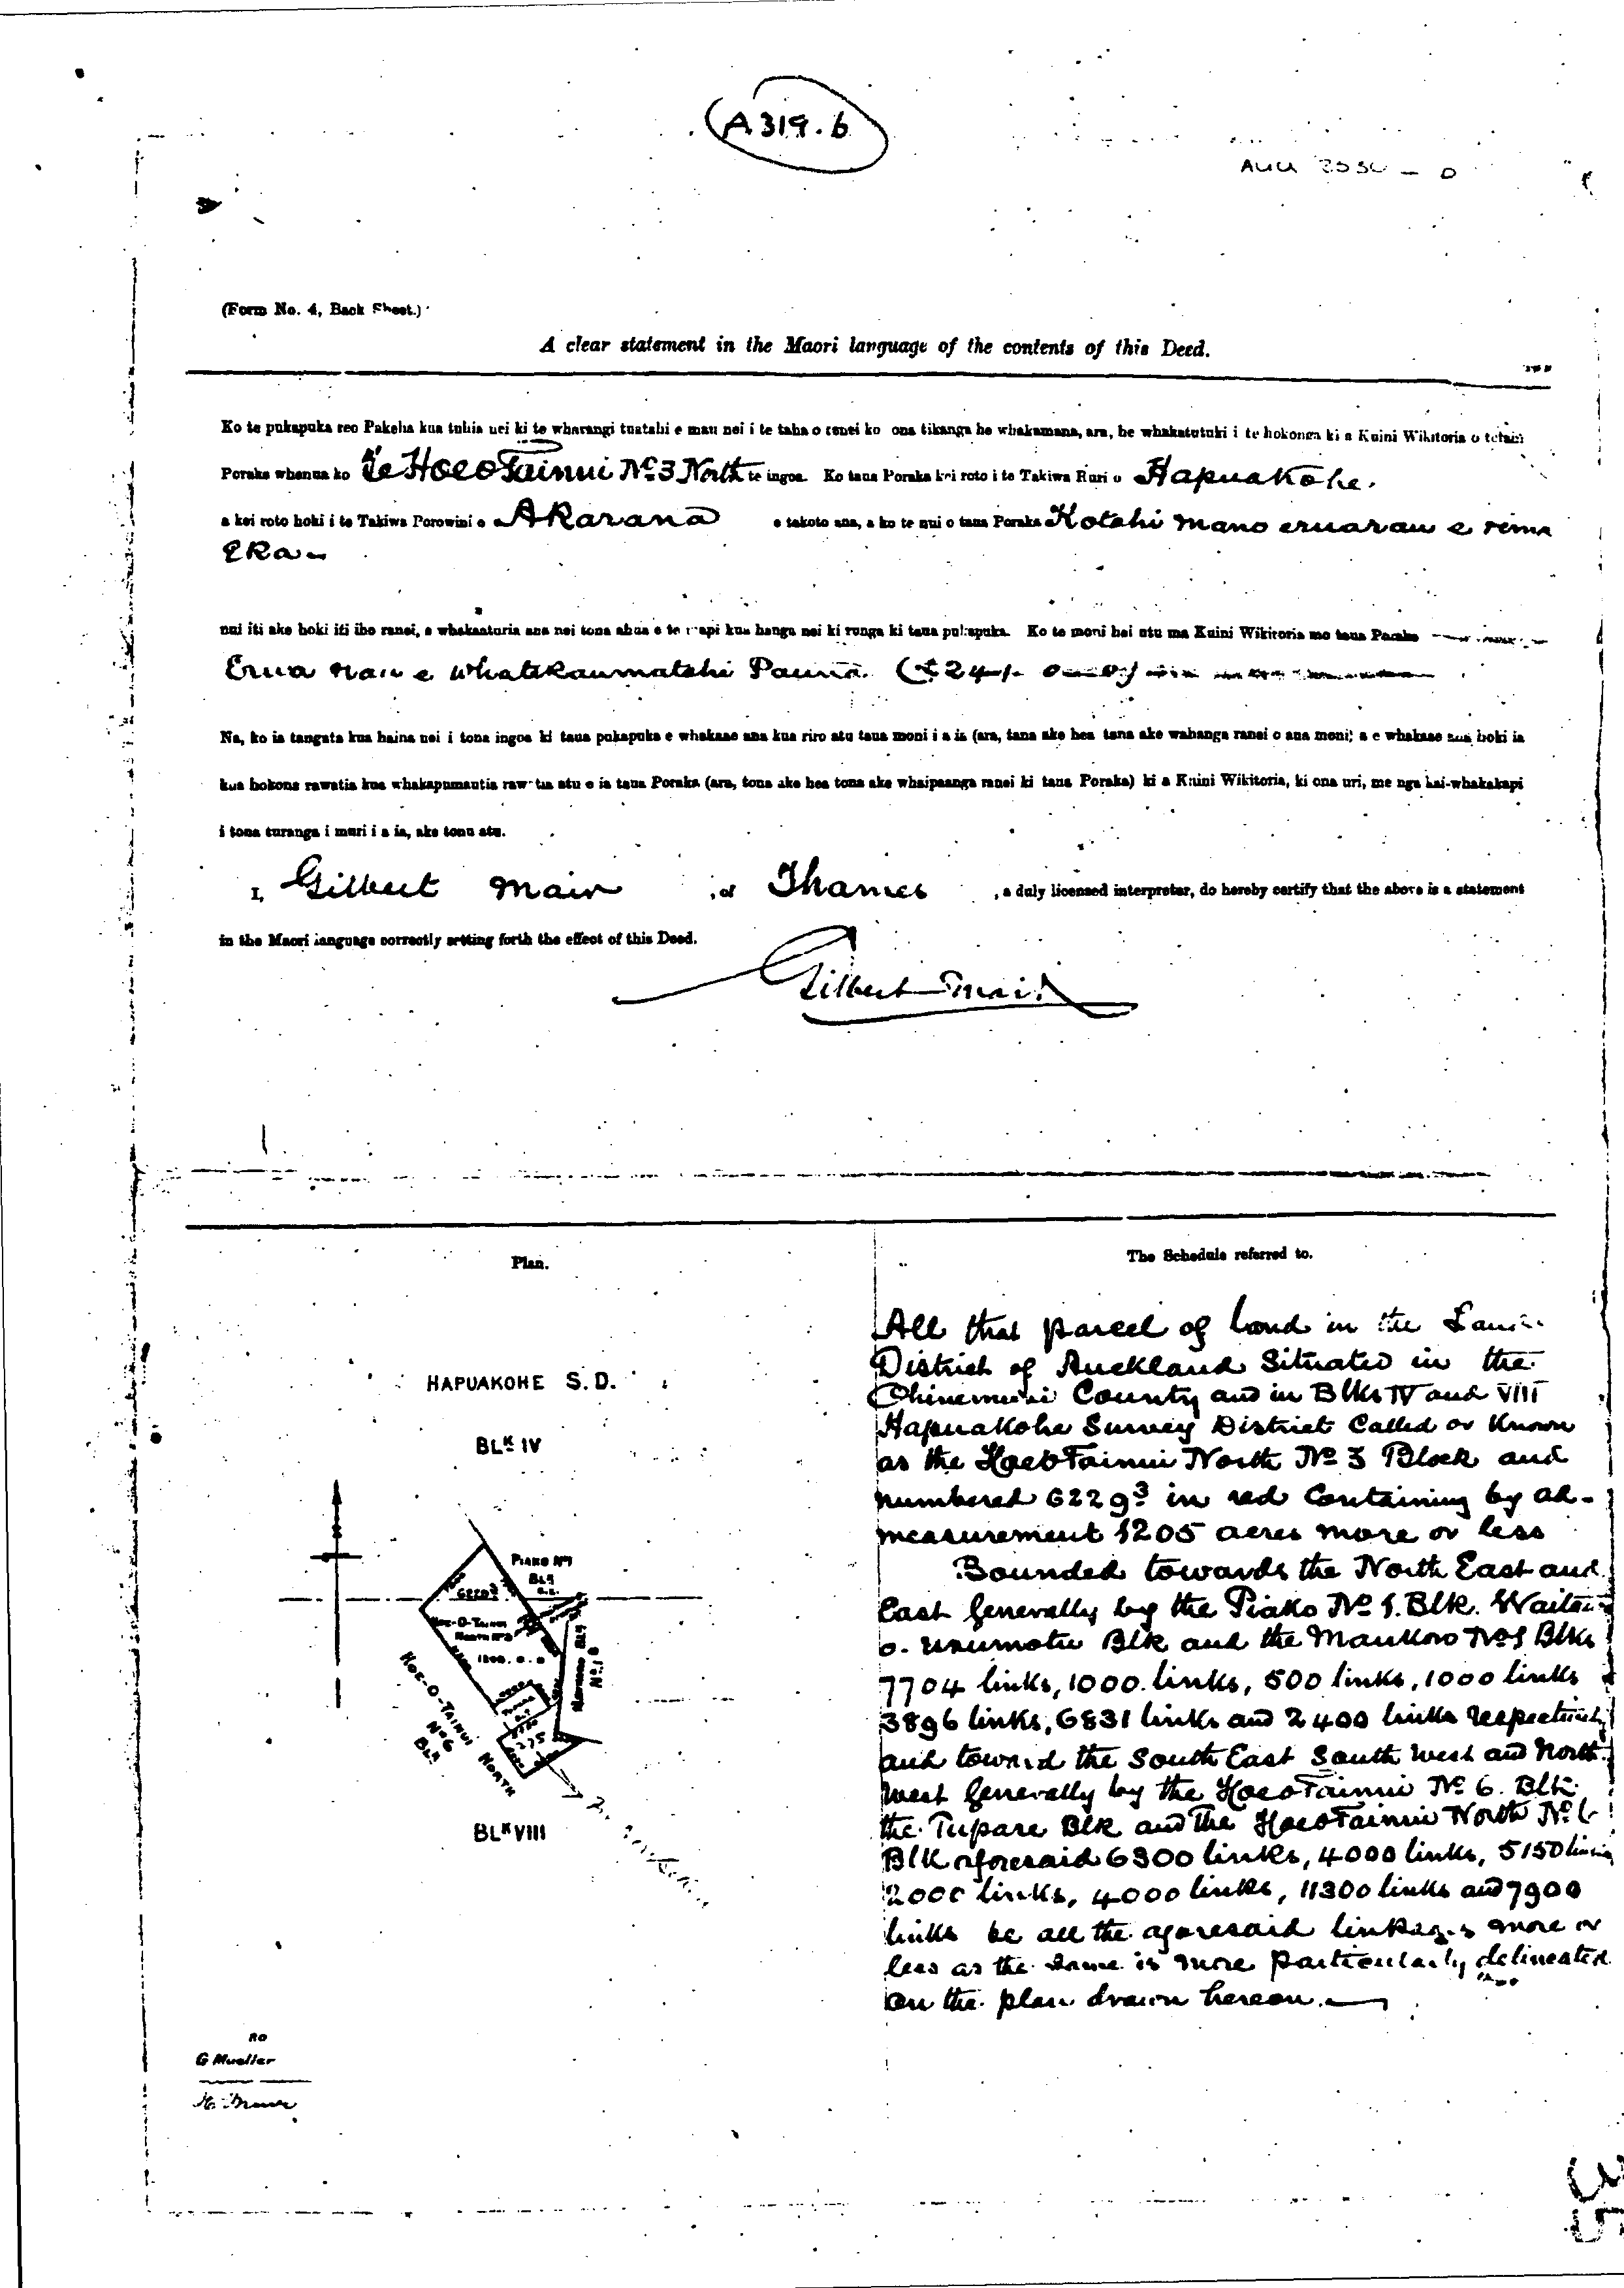 A319.b
(Form No. 4, Back Sheet.)
A clear statement in the Maori language of the contents of this Deed.
Ko te pukapuka reo Pakeha kua tuhia nei ki te wharangi tuatahi e mau nei i te taha o tenei ko ona tikanga he whakamana, ara, he whakatutuki i te hokonga ki a Kuini Wikitoria o tetahi
Poraka whenua ko Te Hoeo Tainui No 3 North te ingoa. Ko taua Poraka kei roto i te Takiwa Ruri o Hapuakohe.
a kei roto hoki i te Takiwa Porowini o Akarana e takoto ana, a ko te nui o taua Poraka Kotahi mano eruarau e rima
eka
nui iti ake hoki iti iho ranei, e whakaaturia ana nei tona ahua e te mapi kua hanga nei ki runga ki taua pukapuka. Ko te moni hei utu ma Kuini Wikitoria mo taua Poraka
Erua rau e whatekaumatahi Pauna (£241. 0 0)
Na, ko ia tangata kua haina nei i tona ingoa ki taua pukapuka e whakaae ana kua riro atu taua moni i a ia (ara, tana ake hea tana ake wahanga ranei o aua moni; a e whakaae ana hoki ia
kua hokona rawatia kua whakapumautia rawatia atu e ia taua Poraka (ara, tona ake hea tona ake whaipaanga ranei ki taua Poraka) ki a Kuini Wikitoria, ki ona uri, me nga kai-whakakapi
i tona turanga i muri i a ia, ake tonu atu.
I, Gilbert Mair, of Thames, a duly licensed interpreter, do hereby certify that the above is a statement
in the Maori language correctly setting forth the effect of this Deed.
Gilbert Mair
Plan.
HAPUAKOHE S.D.
BLK IV
PIAKO No 1
BLK
HOE-O-TAINUI
NORTH No 3
HOE-O-TAINUI NORTH
No 6
BLK
BLK VIII
G Mueller
The Schedule referred to.
All that parcel of land in the Land
District of Auckland Situated in the
Ohinemuri County and in Blks IV and VIII
Hapuakohe Survey District Called or Known
as the Hoeo Tainui North No 3 Block and
numbered 6229³ in red Containing by ad-
measurement 1205 acres more or less
Bounded towards the North East and
East Generally by the Piako No 1. Blk.
Blk and the Maukoro No 1 Blks
7704 links, 1000 links, 500 links, 1000 links
3896 links, 6831 links and 2400 links respectively
and toward the South East South West and North
West Generally by the Hoeo Tainui No 6. Blk.
the Tupare Blk and the Hoeo Tainui North No 6
Blk aforesaid 6300 links, 4000 links, 5150 links
2000 links, 4000 links, 11300 links and 7900
links be all the aforesaid linkages more or
less as the same is more particularly delineated
on the plan drawn hereon.